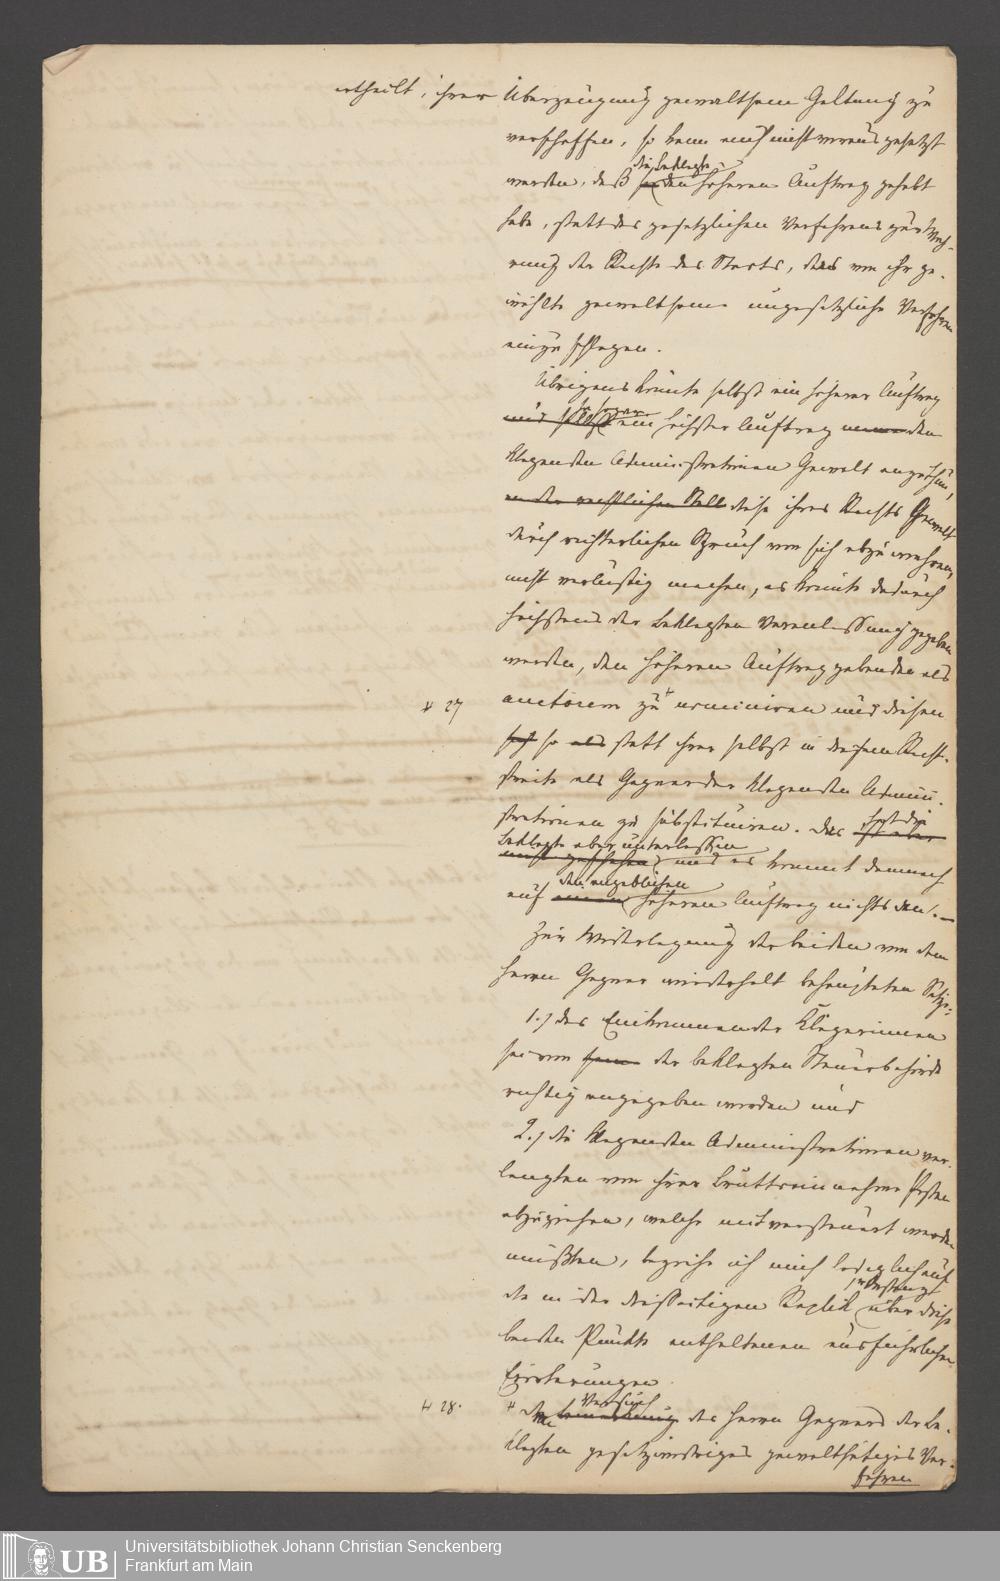 ertheilt, ihrer Überzeugung gewaltsam Geltung zu
verschaffen, so kann auch nicht voraus gesetzt
die Beklagte
werden, daß den höheren Auftrag gehabt
habe, statt des gesetzlichen Verfahrens zur Wah-
rung der Rechte des Staats, das von ihr ge-
wählte gewaltsame ungesetzliche Verfahren
einzuschlagen.
Übrigens könnte selbst ein höherer Auftrag
ja sogar
und selbst ein höchster Auftrag den
klagenden Administrationen Gewalt anzuthun,
diese ihres Rechts Gewalt
durch richterlichen Spruch von sich abzuwehren,
nicht verlustig machen, es könnte dadurch
höchstens der Beklagten Veranlassung gegeben
werden, den höheren Auftrag gebenden als
# 27
auctorem zu nominiren und diesen
so statt ihrer selbst in diesem Rechts-
streite als Gegner der klagenden Admini-
strationen zu substituiren. Das hat die
Beklagte aber unterlassen
nicht geschehen und es kommt demnach
den angeblichen
auf einen höheren Auftrag nichts an. —
Zur Widerlegung der beiden von dem
Herrn Gegner wiederholt behaupteten Sätze:
1.) das Einkommen der Klägerinnen
sei von der beklagten Steuerbehörde
richtig angegeben worden und
2.) die klagenden Administrationen ver-
langten von ihrer Bruttoeinnahme Posten
abzuziehen, welche mitversteuert werden
müßten, beziehe ich mich lediglich auf
die in der diesseitigen Replik über diese
beiden Punkte enthaltenen ausführlichen
Erörterungen.
# 28.
Versuch
des Herrn Gegners der Be-
klagten gesetzwidriges gewaltthätiges Ver-
fahren
UB
Universitätsbibliothek Johann Christian Senckenberg
Frankfurt am Main